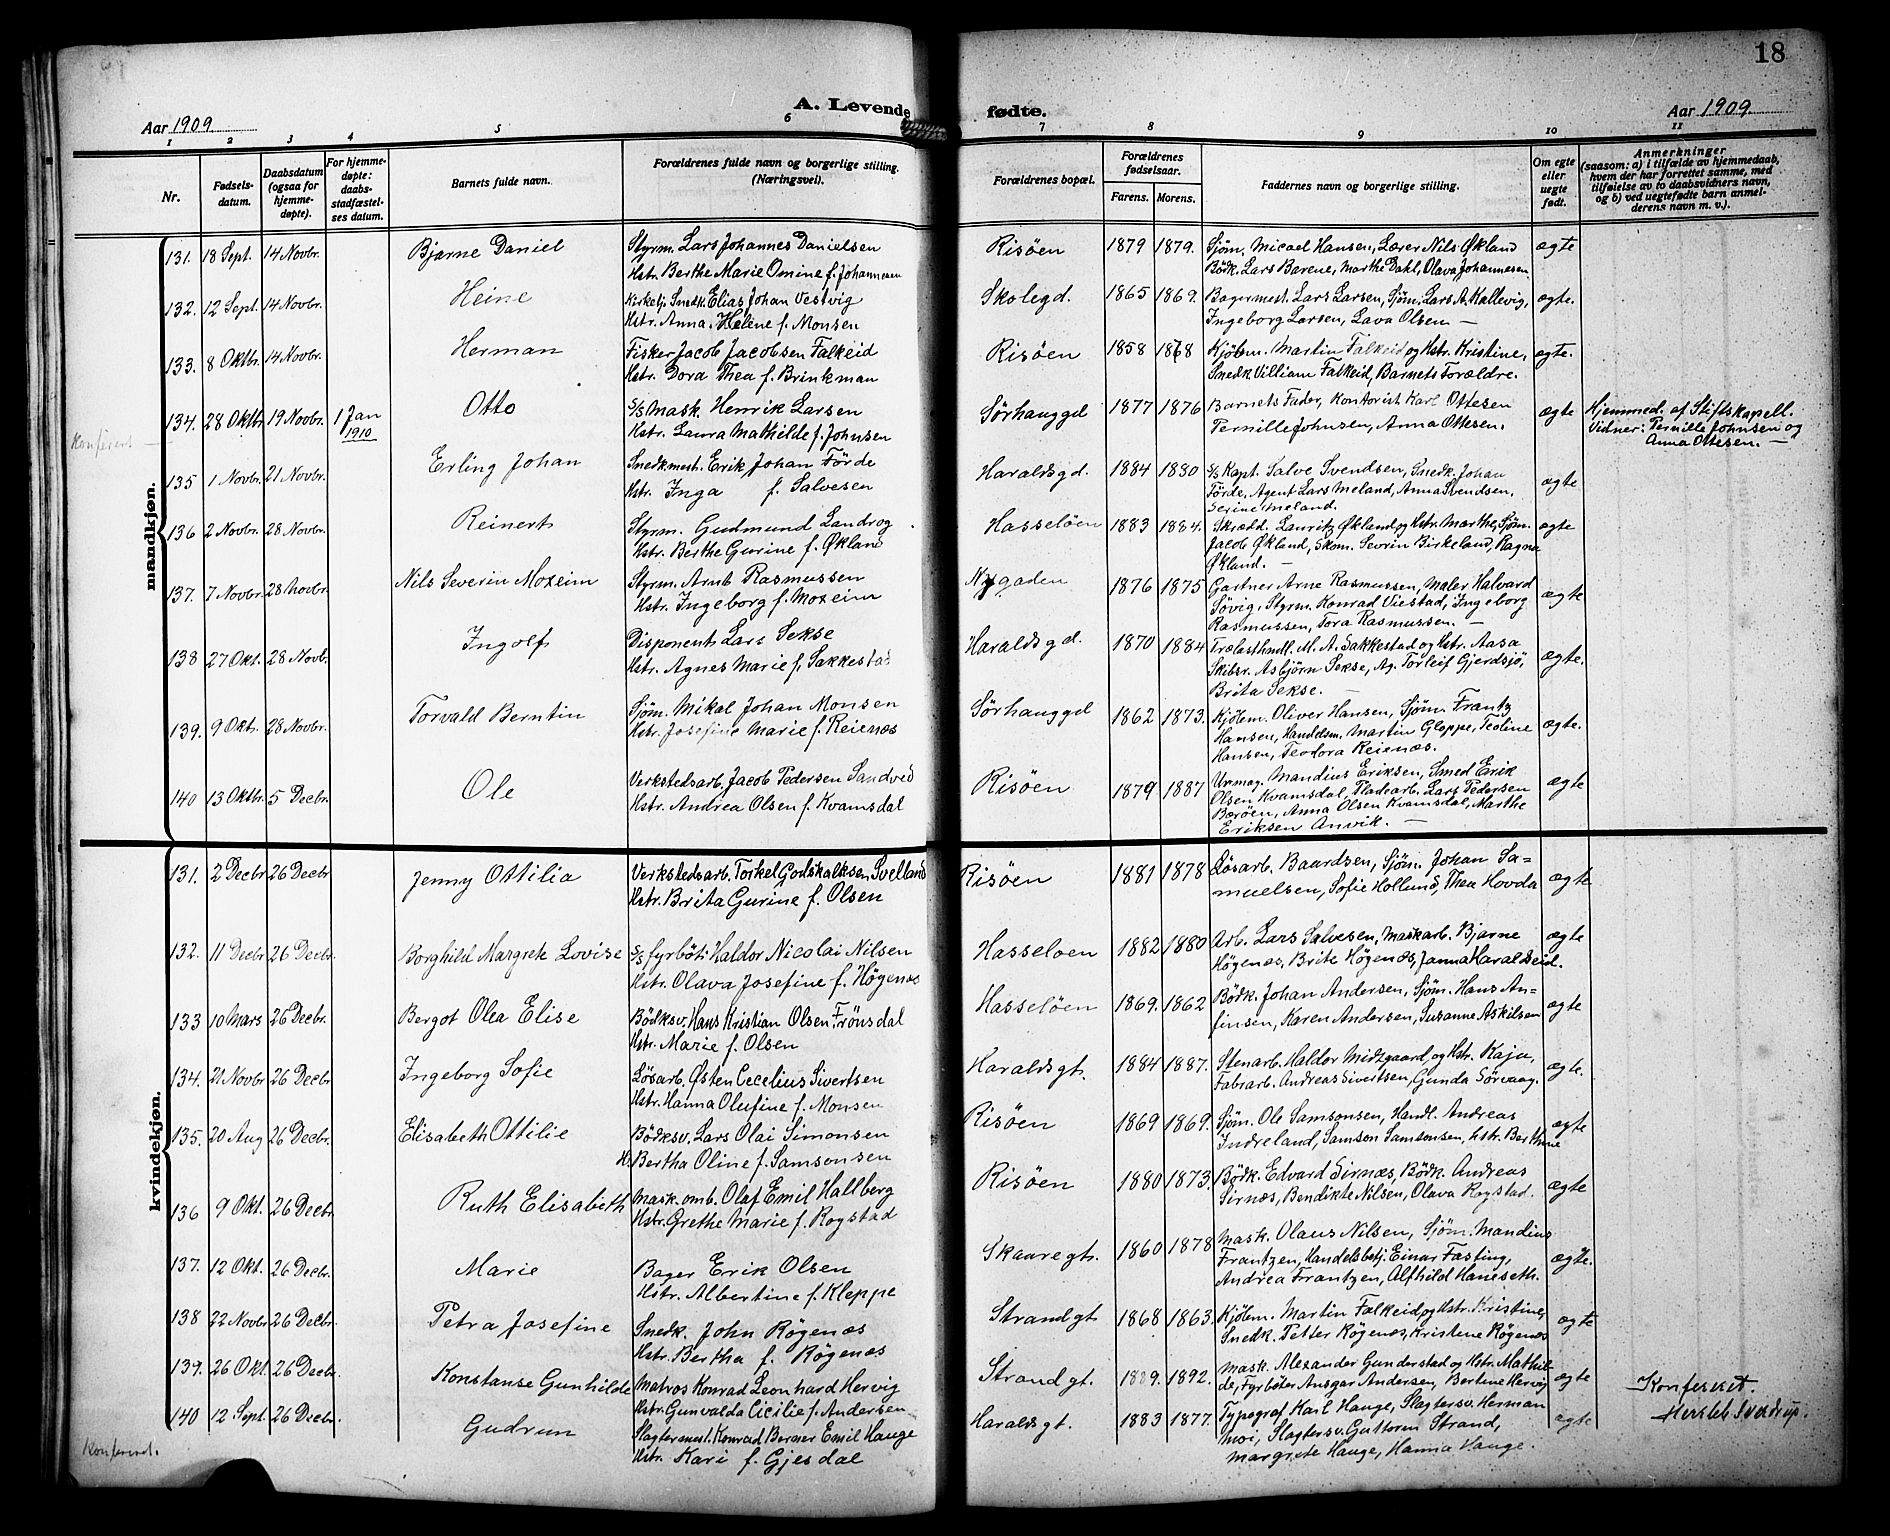 18
A. Levende fødte.
Aar 1909
Aar 1909
1 2 3 4 5 6 7 8 9 10 11
Nr.
Fødsels-
datum.
Daabsdatum
(ogsaa for
hjemme-
døpte).
For hjemme-
døpte:
daabs-
stadfæstel-
ses datum.
Barnets fulde navn.
Forældrenes fulde navn og borgerlige stilling.
(Næringsvei).
Forældrenes bopæl.
Forældrenes
fødselsaar.
Farens. Morens.
Faddernes navn og borgerlige stilling.
Om egte
eller
uegte
født.
Anmerkninger
(saasom: a) i tilfælde av hjemmedaab,
hvem der har forrettet samme, med
tilføielse av to daabsvidners navn,
og b) ved uegtefødte barn anmel-
derens navn m. v.).
mandkjøn.
131. 18 Sept. 14 Novbr. Bjarne Daniel Styrm. Lars Johannes Danielsen Risöen 1879 1879. Sjöm. Micael Hansen, Lærer Nils Økland ægte
Hstr. Berthe Marie Omine f. Johannesen Bödk. Lars Barene, Marthe Dahl, Olava Johannesen
132. 12 Sept. 14 Novbr. Heine Kirketj. Snedk. Elias Johan Vestvig Skolegd. 1865 1869. Bagermest. Lars Larsen, Sjöm. Lars A. Hallevig, ægte.
Hstr. Anna Helene f. Monsen Ingeborg Larsen, Lava Olsen —
133. 8 Oktbr. 14 Novbr. Herman Fisker Jacob Jacobsen Falkeid Risöen 1858 1868 Kjöbm. Martin Falkeid og Hstr. Kristine, ægte.
Hstr. Dora Thea f. Brinkman Snedk. Villiam Falkeid, Barnets Forældre.
134. 28 Oktbr. 19 Novbr. 1 Jan 1910 Otto S/S Mask. Henrik Larsen Sörhauggd 1877 1876 Barnets Fader, Kontorist Karl Ottesen ægte Hjemmed. af Stiftskapell.
Hstr. Laura Mathilde f. Johnsen Pernille Johnsen, Anna Ottesen. Vidner: Pernille Johnsen og
Anna Ottesen. —
Konferert —
135 1 Novbr. 21 Novbr. Erling Johan Snedkmest. Erik Johan Förde Haraldsgd. 1884 1880 S/S Kapt. Salve Svendsen, Snedk. Johan ægte
Hstr. Inga f. Salvesen Förde, Agent Lars Meland, Anna Svendsen,
Serine Meland.
136 2 Novbr. 28 Novbr. Reinert Styrm. Gudmund Landrog Hasselöen 1883 1884. Skrædd. Lauritz Økland og Hstr. Marthe, Sjöm. ægte
Hstr. Berthe Gurine f. Økland Jacob Økland, Skom. Sevrin Birkeland, Ragna
Økland. —
137. 7 Novbr. 28 Novbr. Nils Severin Moxeim Styrm. Arnt Rasmussen Nygaden 1876 1875 Gartner Arne Rasmussen, Maler Halvard ægte
Hstr. Ingeborg f. Moxeim Sövig, Styrm. Konrad Viestad, Ingeborg
Rasmussen, Tora Rasmussen. —
138 27 Okt. 28 Novb. Ingolf Disponent Lars Sekse Haraldsgd. 1870 1884 Trælasthndl. M. A. Sakkestad og Hstr. Aasa ægte.
Hstr. Agnes Marie f. Sakkestad Skibsr. Asbjörn Sekse, Ag. Torleif Gjerdsjö,
Brita Sekse. —
139. 9 Okt. 28 Novbr. Torvald Berntin Sjöm. Mikal Johan Monsen Sörhauggd 1862 1873. Kjölem. Oliver Hansen, Sjöm. Frantz ægte.
Hstr. Josefine Marie f. Reienæs Hansen, Handelsm. Martin Gloppe, Teoline
Hansen, Teodora Reienæs.
140 13 Oktbr. 5 Decbr. Ole Verkstedsarb. Jacob Pedersen Sandved Risöen 1879 1887 Urmag. Mandius Eriksen, Smed Erik ægte
Hstr. Andrea Olsen f. Kvamsdal Olsen Kvamsdal, Pladearb. Lars Pedersen
Baröen, Anna Olsen Kvamsdal, Marthe
Eriksen Anvik. —
kvindekjøn.
131. 2 Decbr 26 Decbr Jenny Ottilia Verkstedsarb. Torkel Godskalksen Svelland Risöen 1881 1878 Lösarb. Baardsen, Sjöm. Johan Sa= ægte
Hstr. Brita Gurine f. Olsen muelsen, Sofie Hollund, Thea Hovda
132. 11 Decbr 26 Decbr. Borghild Margrete Lovise S/S fyrböt. Haldor Nicolai Nilsen Hasselöen 1882 1880 Arb. Lars Salvesen, Maskarb. Bjarne ægte
Hstr. Olava Josefine f. Högenæs Högenæs, Brite Högenæs, Janna Haraldseid.
133 10 Mars 26 Decbr. Bergot Olea Elise Bödksv. Hans Kristian Olsen Frönsdal Hasselöen 1869. 1862 Bödk. Johan Andersen, Sjöm. Hans An= ægte
Hstr. Marie f. Olsen finsen, Karen Andersen, Susanne Askilsen
134. 21 Novbr 26 Decbr Ingeborg Sofie Lösarb. Østen Cecelius Sivertsen Haraldsgt. 1884 1887. Stenarb. Haldor Midtgaard og Hstr. Kaja, ægte.
Hstr. Hanna Olufine f. Monsen Fabrarb. Andreas Sivertsen, Gunda Sörvaag.
135. 20 Aug 26 Decbr. Elisabeth Ottilie Bödksv. Lars Olai Simonsen Risöen 1869 1869. Sjöm. Ole Samsonsen, Handl. Andreas ægte
H. Bertha Oline f. Samsonsen Indreland, Samson Samsonsen, hstr. Berthine
136 9 Okt. 26 Decbr. Ruth Elisabeth Mask. omb. Olaf Emil Hallberg Risöen 1880 1873. Bödk. Edvard Sirnæs, Bödk. Andreas ægte
Hstr. Grethe Marie f. Rogstad Sirnæs, Bendikte Nilsen, Olava Rogstad.
137. 12 Okt. 26 Decbr. Marie Bager Erik Olsen Skaaregt. 1860 1878 Mask. Olaus Nilsen, Sjöm. Mandius ægte.
Hstr. Albertine f. Kleppe Frantzen, Handelsbetj. Einar Fasting,
Andrea Frantzen, Alfhild Haneseth.
138 22 Novbr 26 Decbr. Petra Josefine Snedk. John Rögenæs Strandgt. 1868 1863. Kjölem. Martin Falkeid og Hstr. Kristine, ægte
Hstr. Bertha f. Rögenæs Snedk. Petter Rögenæs, Kristene Rögenæs
139. 26 Okt. 26 Decbr. Konstanse Gunhilde Matros Konrad Leonhard Hervig Strandgt. 1889. 1892. Mask. Alexander Gunderstad og Hstr. Mathil= ægte
Hstr. Gunvalda Cicilie f. Andersen de, Fyrböter Ansgar Andersen, Bertene Hervig
140 12 Sept. 26 Decbr. Gudrun Slagtermest. Konrad Berner Emil Hauge Haraldsgt. 1883 1877. Typograf Karl Hauge, Slagtersv. Herman ægte
Hstr. Kari f. Gjesdal Moi, Slagtersv. Guttorm Strand,
Margrete Hauge, Hanna Hauge.
Konferert.
Konfereret.
Hersleb Sverdrup.